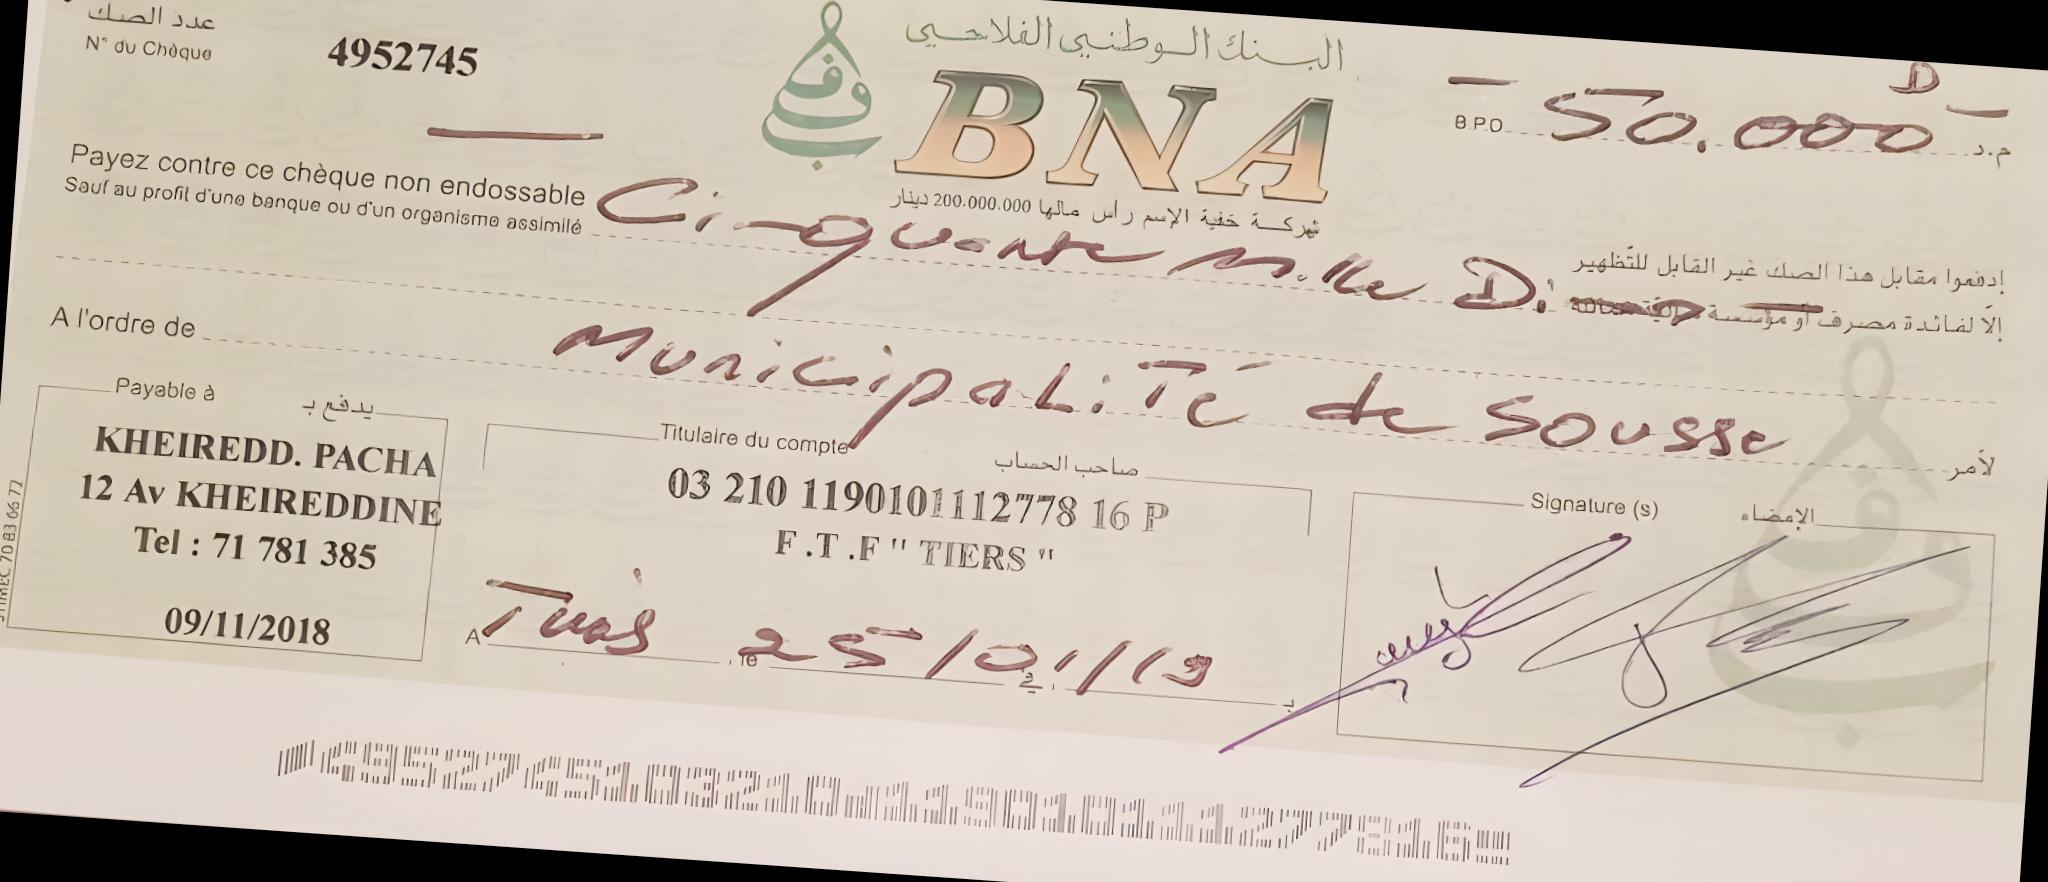 عدد الصك
N° du Chèque
4952745
البنك الوطني الفلاحي
BNA
شركة خفية الإسم رأس مالها 200.000.000 دينار
D
B.P.D. 50.000 م.د
Payez contre ce chèque non endossable
Sauf au profit d'une banque ou d'un organisme assimilé
Cinquante Mille D.
إدفعوا مقابل هذا الصك غير القابل للتظهير
إلا لفائدة مصرف أو مؤسسة
A l'ordre de Municipalité de Sousse لأمر
Payable à يدفع بـ
KHEIREDD. PACHA
12 Av KHEIREDDINE
Tel : 71 781 385
09/11/2018
Titulaire du compte صاحب الحساب
03 210 1190101112778 16 P
F .T .F " TIERS "
A Tunis , le 25/01/19 بـ
Signature (s) الإمضاء
4952745 03210 119010111277816